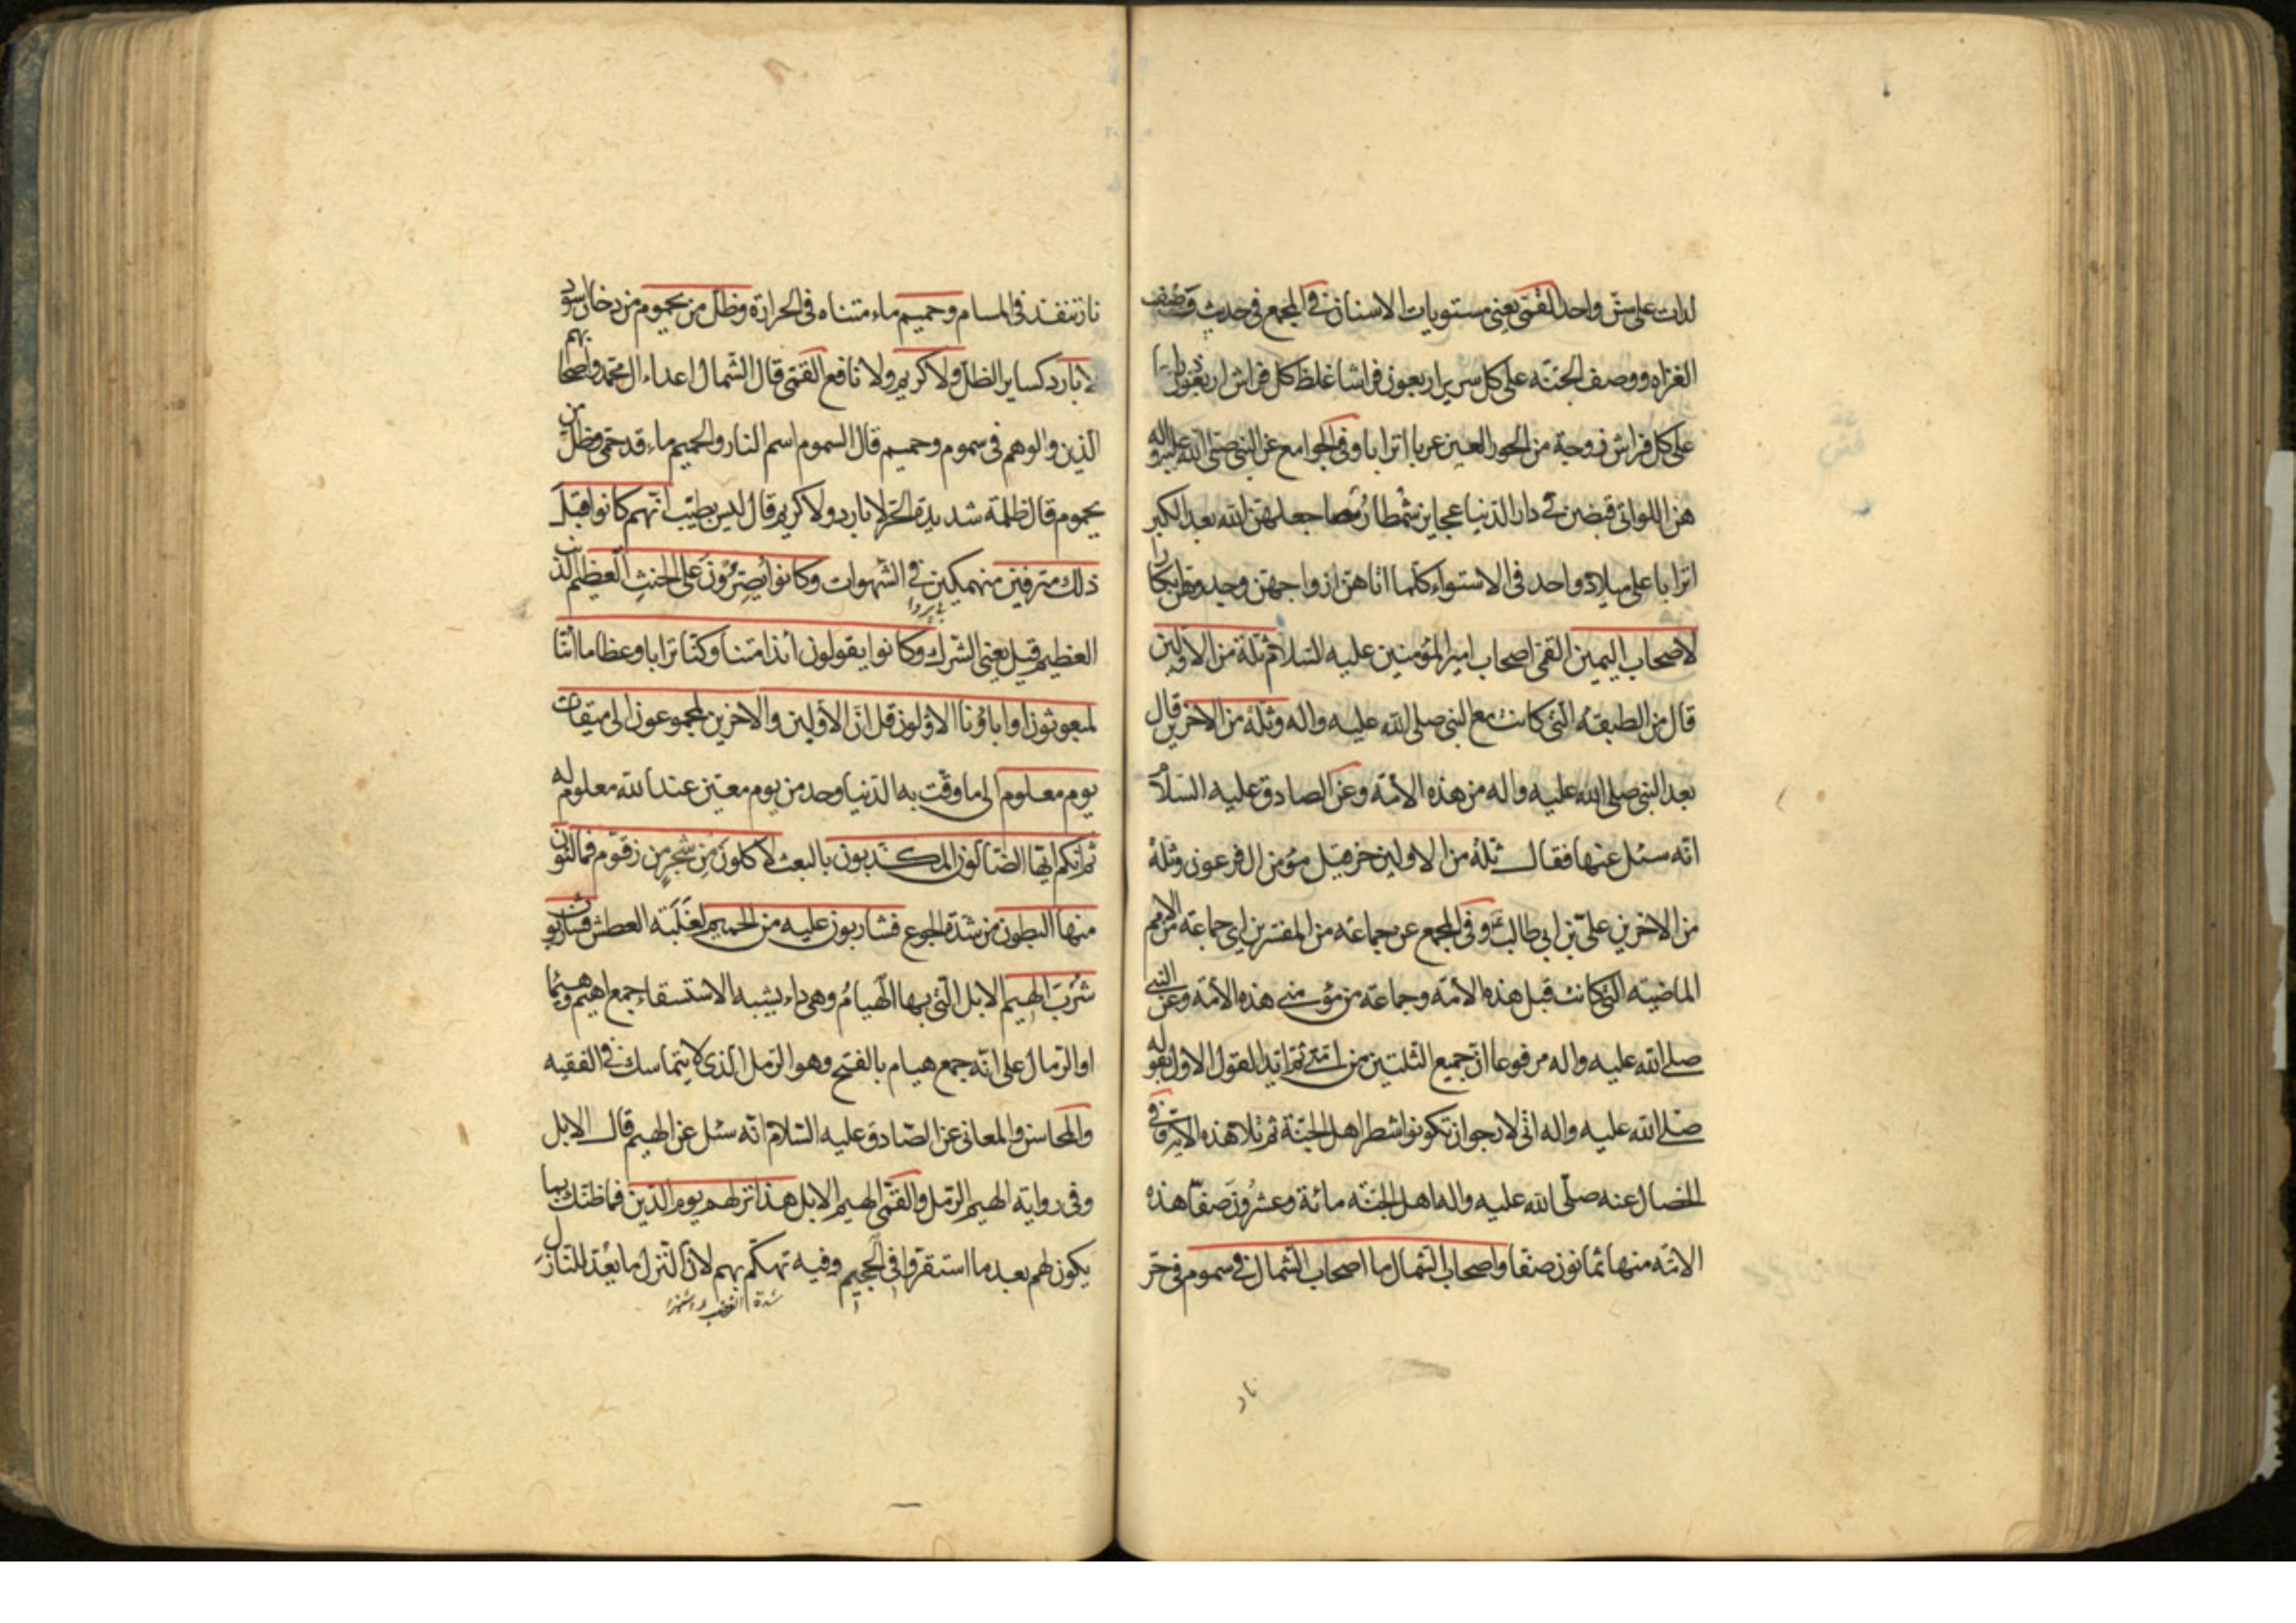 لدات على سنّ واحد القمّى يعنى مستويات الاسنان وفى المجمع فى حديث وصف
الغزاه ووصف الجنّته على كل سرير اربعون فراشا غلظ كل فراش اربعون ذراعا
على كل فراش زوجة من الحور العين عربا اترابا وفى الجوامع عن النبى صلى الله عليه واله
هن اللواتى قبضن فى دار الدّنيا عجايز شمطا رمصا جعلهن الله بعد الكبر
اترابا على ميلاد واحد فى الاستواء كلما اتاهن ازواجهن وجدوهن ابكارا
لاصحاب اليمين القمّى اصحاب امير المؤمنين عليه السّلام ثلّة من الاوّلين
قال من الطبقة التى كانت مع النبى صلى الله عليه واله وثلّة من الاخرين قال
بعد النبى صلى الله عليه واله من هذه الأمّة وعن الصادق عليه السّلام
انّه سئل عنها فقال ثلة من الاولين حزقيل مؤمن ال فرعون وثلّة
من الاخرين علىّ بن ابى طالب وفى المجمع عن جماعة من المفسّرين اى جماعة من الامم
الماضيته التى كانت قبل هذه الأمّة وجماعة من مؤمنى هذه الأمّة وعن النبى
صلى الله عليه واله مرفوعا انّ جميع الثّلتين من امّتى ثم ايّد القول الاول بقوله
صلى الله عليه واله انّى لارجو ان تكونوا شطر اهل الجنّة ثم تلا هذه الاية وفى
الخصال عنه صلّى الله عليه واله اهل الجنّه مائة وعشرون صفّا هذه
الامّه منها ثمانون صفّا واصحاب الشمال ما اصحاب الشّمال فى سموم فى حرّ
نار
نار تنفذ فى المسام وحميم ماء متناه فى الحرارة وظلّ من يحموم من دخان اسود
لا بارد كساير الظلّ ولا كريم ولا نافع القمّى قال الشّمال اعداء ال محمّد واصحابهم
الّذين والوهم فى سموم وحميم قال السموم اسم النار والحميم ماء قد حمى وظلّ من
يحموم قال ظلمة شديدة الحرّ لا بارد ولا كريم قال ليس بطيّب انّهم كانوا قبل
ذلك مترفين منهمكين فى الشهوات وكانوا يُصِرّوْنَ على الحنثِ العظيم الذنب
العظيم قيل يعنى الشرك وكانوا يقولون أئذا متنا وكنّا ترابا وعظاما ائنّا
لمبعوثون أو اباؤنا الاوّلون قل انّ الأوّلين والاخرين لمجموعون الى ميقات
يوم معلوم الى ما وقّت به الدّنيا وحد من يوم معيّن عند الله معلوم له
ثم انّكم ايّها الضّالّون المكذّبون بالبعث لاكلون مِن شجرٍ من زقّوم فمالئون
منها البطون من شدّة الجوع فشاربون عليه من الحميم لغَلَبَة العطش فشاربون
شُرْبَ الهيم الابل الّتى بها الهيامُ وهى داء يشبه الاستسقاء جمع اهيم وهيما
او الرّمال على انّه جمع هيام بالفتح وهو الرّمل الذى لا يتماسك فى الفقيه
والمحاسن والمعانى عن الصّادق عليه السّلام انّه سئل عن الهيم قال الابل
وفى رواية الهيم الرّمل والقمّى الهيم الابل هذا نزلهم يوم الدّين فما ظنّك بما
يكون لهم بعد ما استقرّوا فى الجحيم وفيه تهكّم بهم لانّ النّزل ما يُعدّ للنّازل